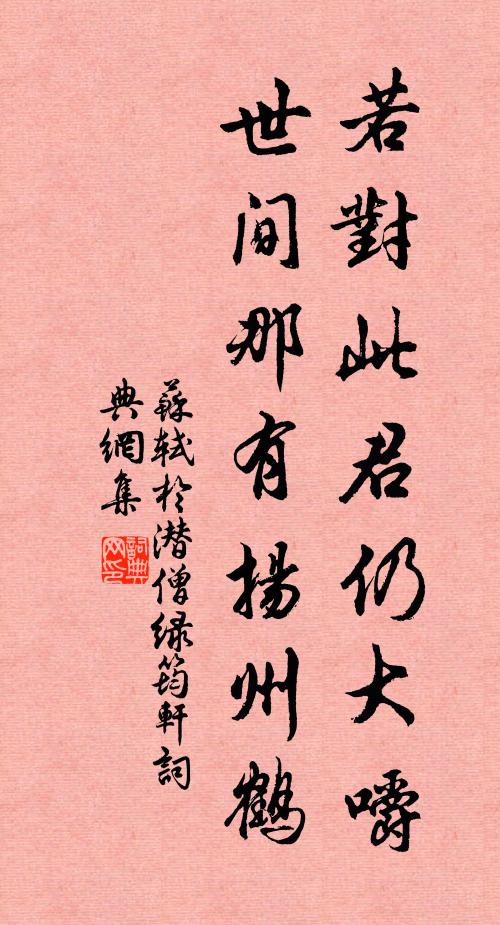 若對此君仍大嚼
世间那有揚州鶴
蘇軾於潜僧绿筠軒詞
典網集
詞典
网印